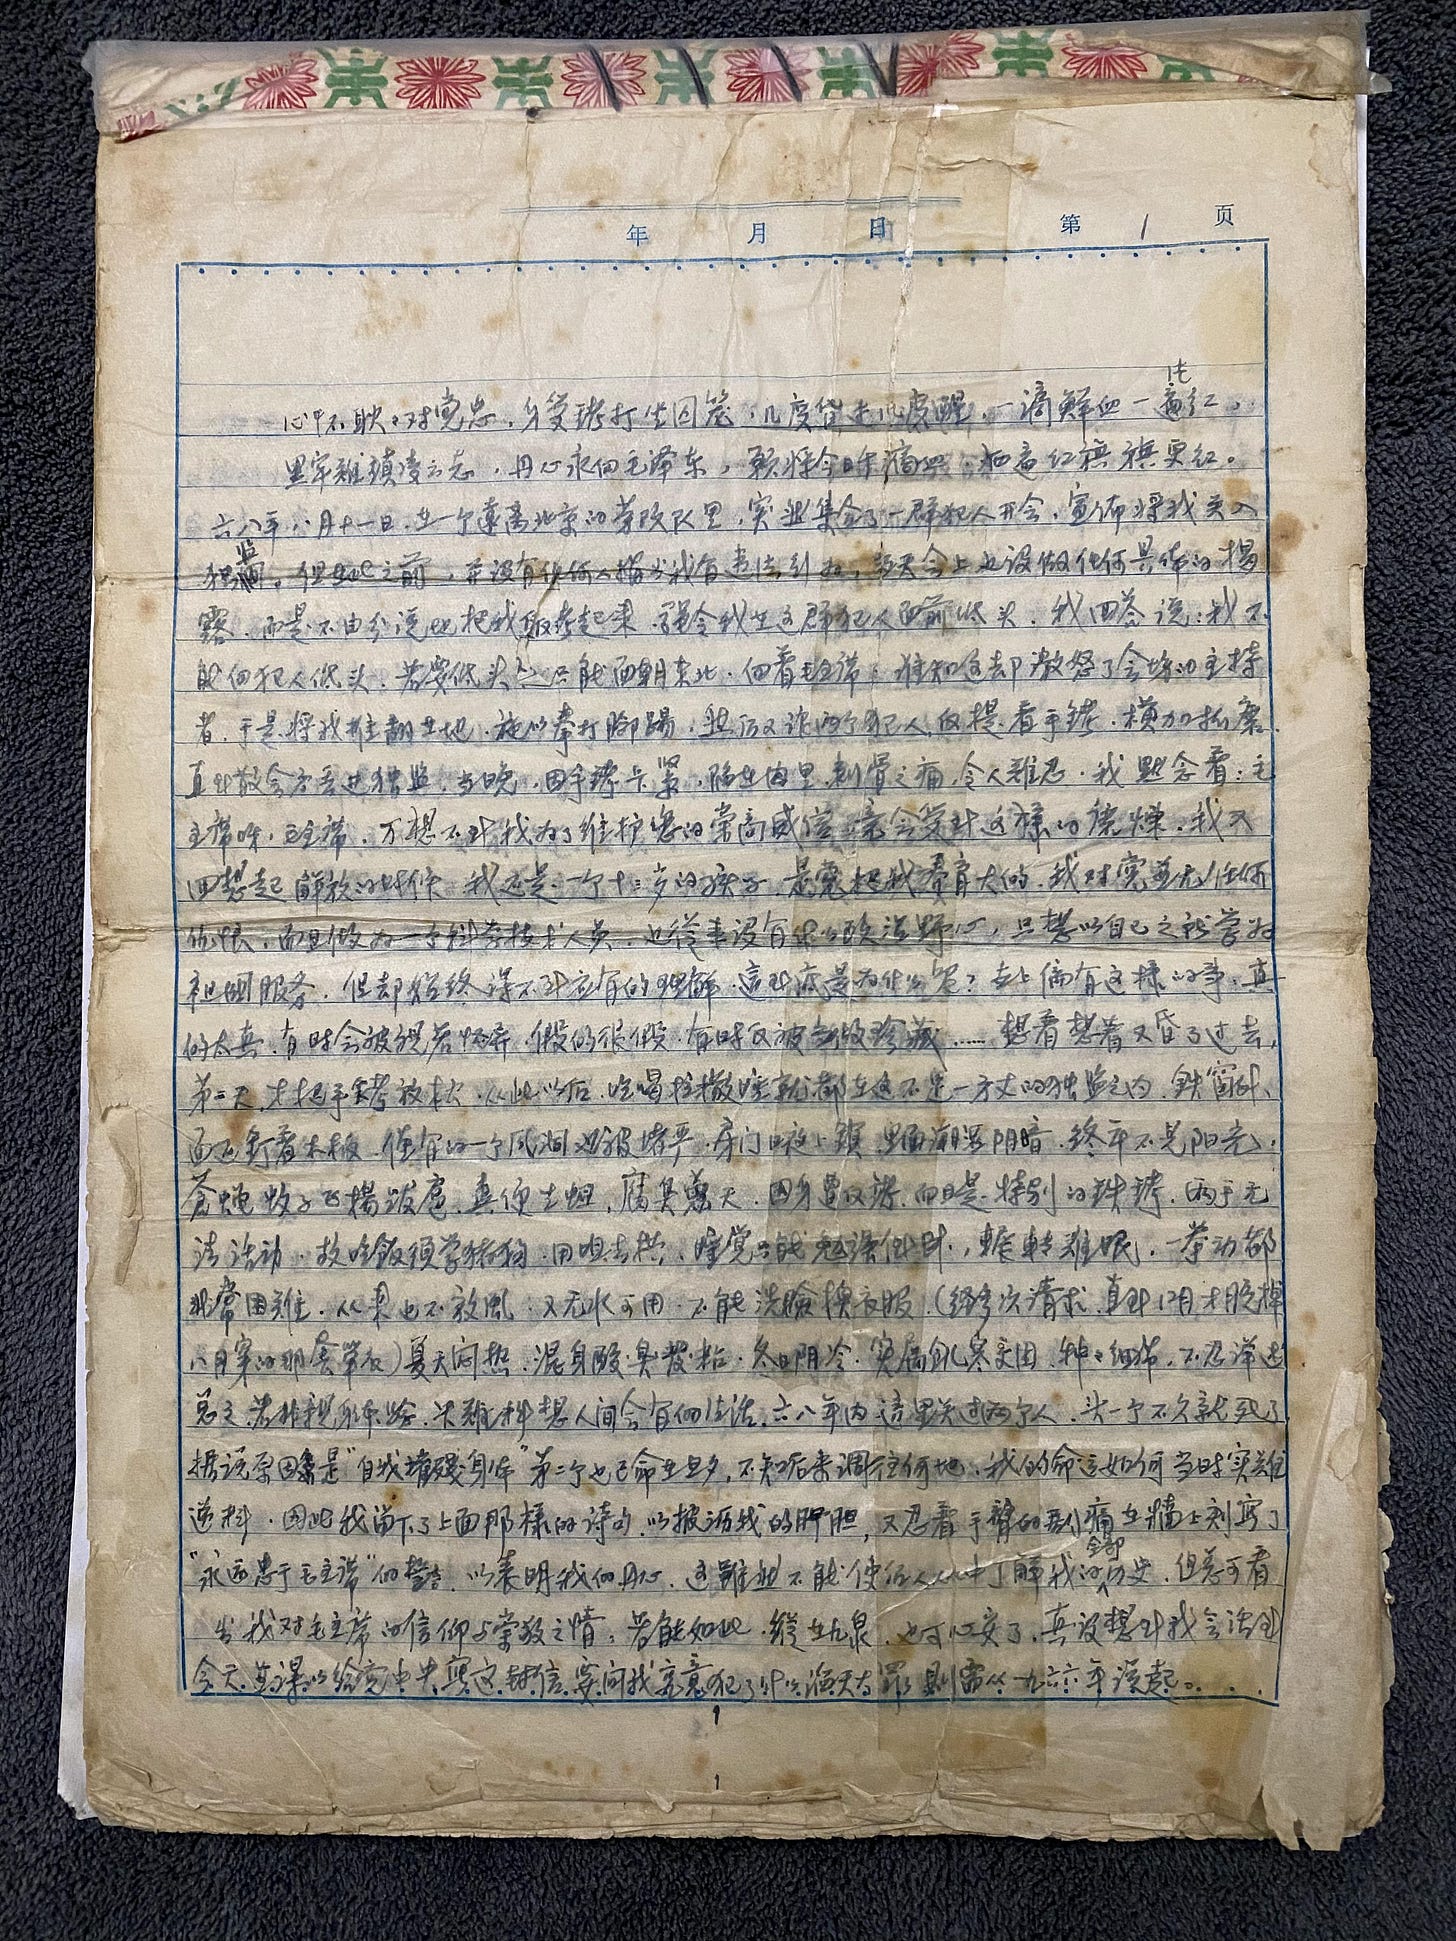 年 月 日 第 1 页
心中耿耿对党忠，身受铐打坐囚笼，几度昏去几度醒，一滴鲜血一滴红。
黑牢难锁凌云志，丹心永向毛泽东，愿将今日滴血，把红旗旗更红。
六八年八月十一日，在一个远离北京的劳改队里，突然集合了一群犯人开会，宣布将我关入
独监。但在此之前，并没有任何人指出我有违法行为，当天会上也没做任何具体的揭
露，而是不由分说地把我铐起来，强令我在这群犯人面前低头，我回答说：我不
能向犯人低头，若要低头，只能面朝东北，向着毛主席。谁知这却激怒了会场的主持
者，于是将我推翻在地，施以拳打脚踢，然后又让两个犯人提着手铐，横加折磨，
直到散会弄进独监。当晚，因手铐卡紧，陷在肉里，刺骨之痛，令人难忍，我默念着：毛
主席呀，毛主席，万想不到我为了维护您的崇高威信，竟会受到这样的，我又
回想起解放的时候，我还是一个十三岁的孩子，是党把我养育大的，我对党并无任何
仇恨，而且做为一个科学技术人员，也从来没有什么政治野心，只想以自己之所学为
祖国服务，但却始终得不到应有的理解，这到底是为什么呢？世上偏有这样的事，真
的太真，有时会被视若，假的很假，有时反被当做珍藏……想着想着又昏了过去，
第二天，才把手铐放松，从此以后，吃喝拉撒睡就都在这不足一方丈的独监之内，铁窗外
面还钉着木板，仅有的一个风洞也被堵严，房门日夜上锁，里面潮湿阴暗，终年不见阳光；
苍蝇蚊子飞扬跋扈，粪便生蛆，腐臭熏天，因身戴反铐，而且是特别的铁铐，两手无
法活动，故吃饭须学猪狗，用嘴去拱，睡觉只能勉强，辗转难眠，一举动都
非常困难，从来也不放风，又无水可用，不能洗脸换衣服，（经多次请求，直到12月才脱掉
八月穿的那套单衣）夏天闷热，混身酸臭发粘，冬日阴冷，实属饥寒交困，种种细节，不忍详述
总之，若非亲身体验，决难料想人间会有的生活，六八年内这里关过两个人，头一个不久就死了
据说原因是“自我摧残身体”第二个也已命在旦夕，不知后来调往何地，我的命运如何当时实难
逆料，因此我留下了上面那样的诗句，以披沥我的肝胆，又忍着手臂的剧痛在墙上刻写了
“永远忠于毛主席”的誓言，以表明我的丹心，这虽然不能使人从中了解我的全部历史，但总可看
出我对毛主席的信仰与崇敬之情，若能如此，纵在九泉，也可心安了，真没想到我会活到
今天，并得以给党中央写这封信，要问我究竟犯了什么滔天大罪，则需从一九六六年谈起。
1
1